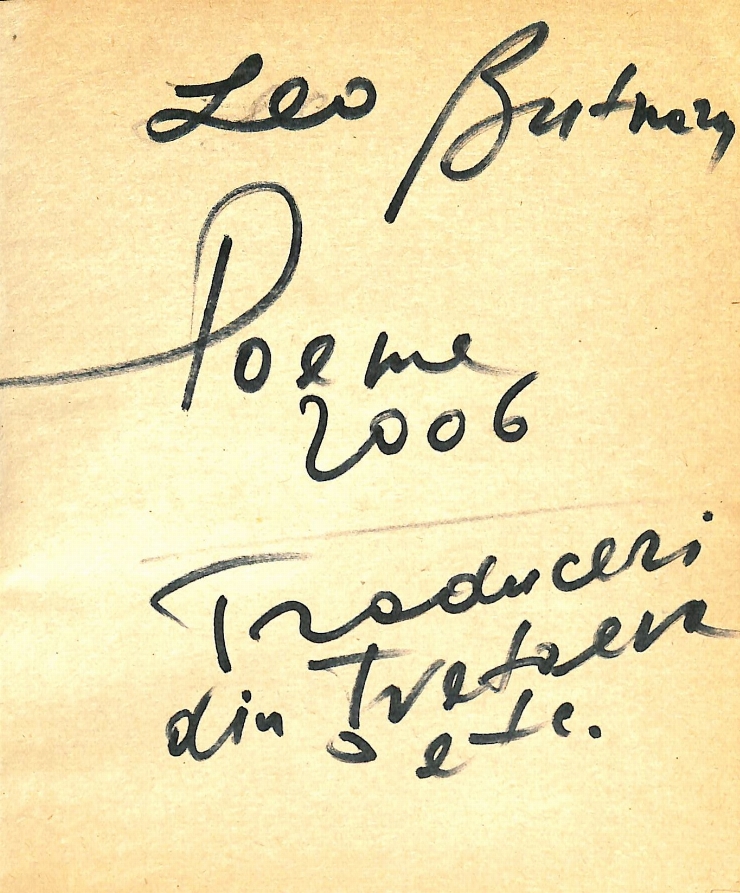 Leo Butnaru
Poeme
2006
Traduceri
din Țvetaeva
etc.